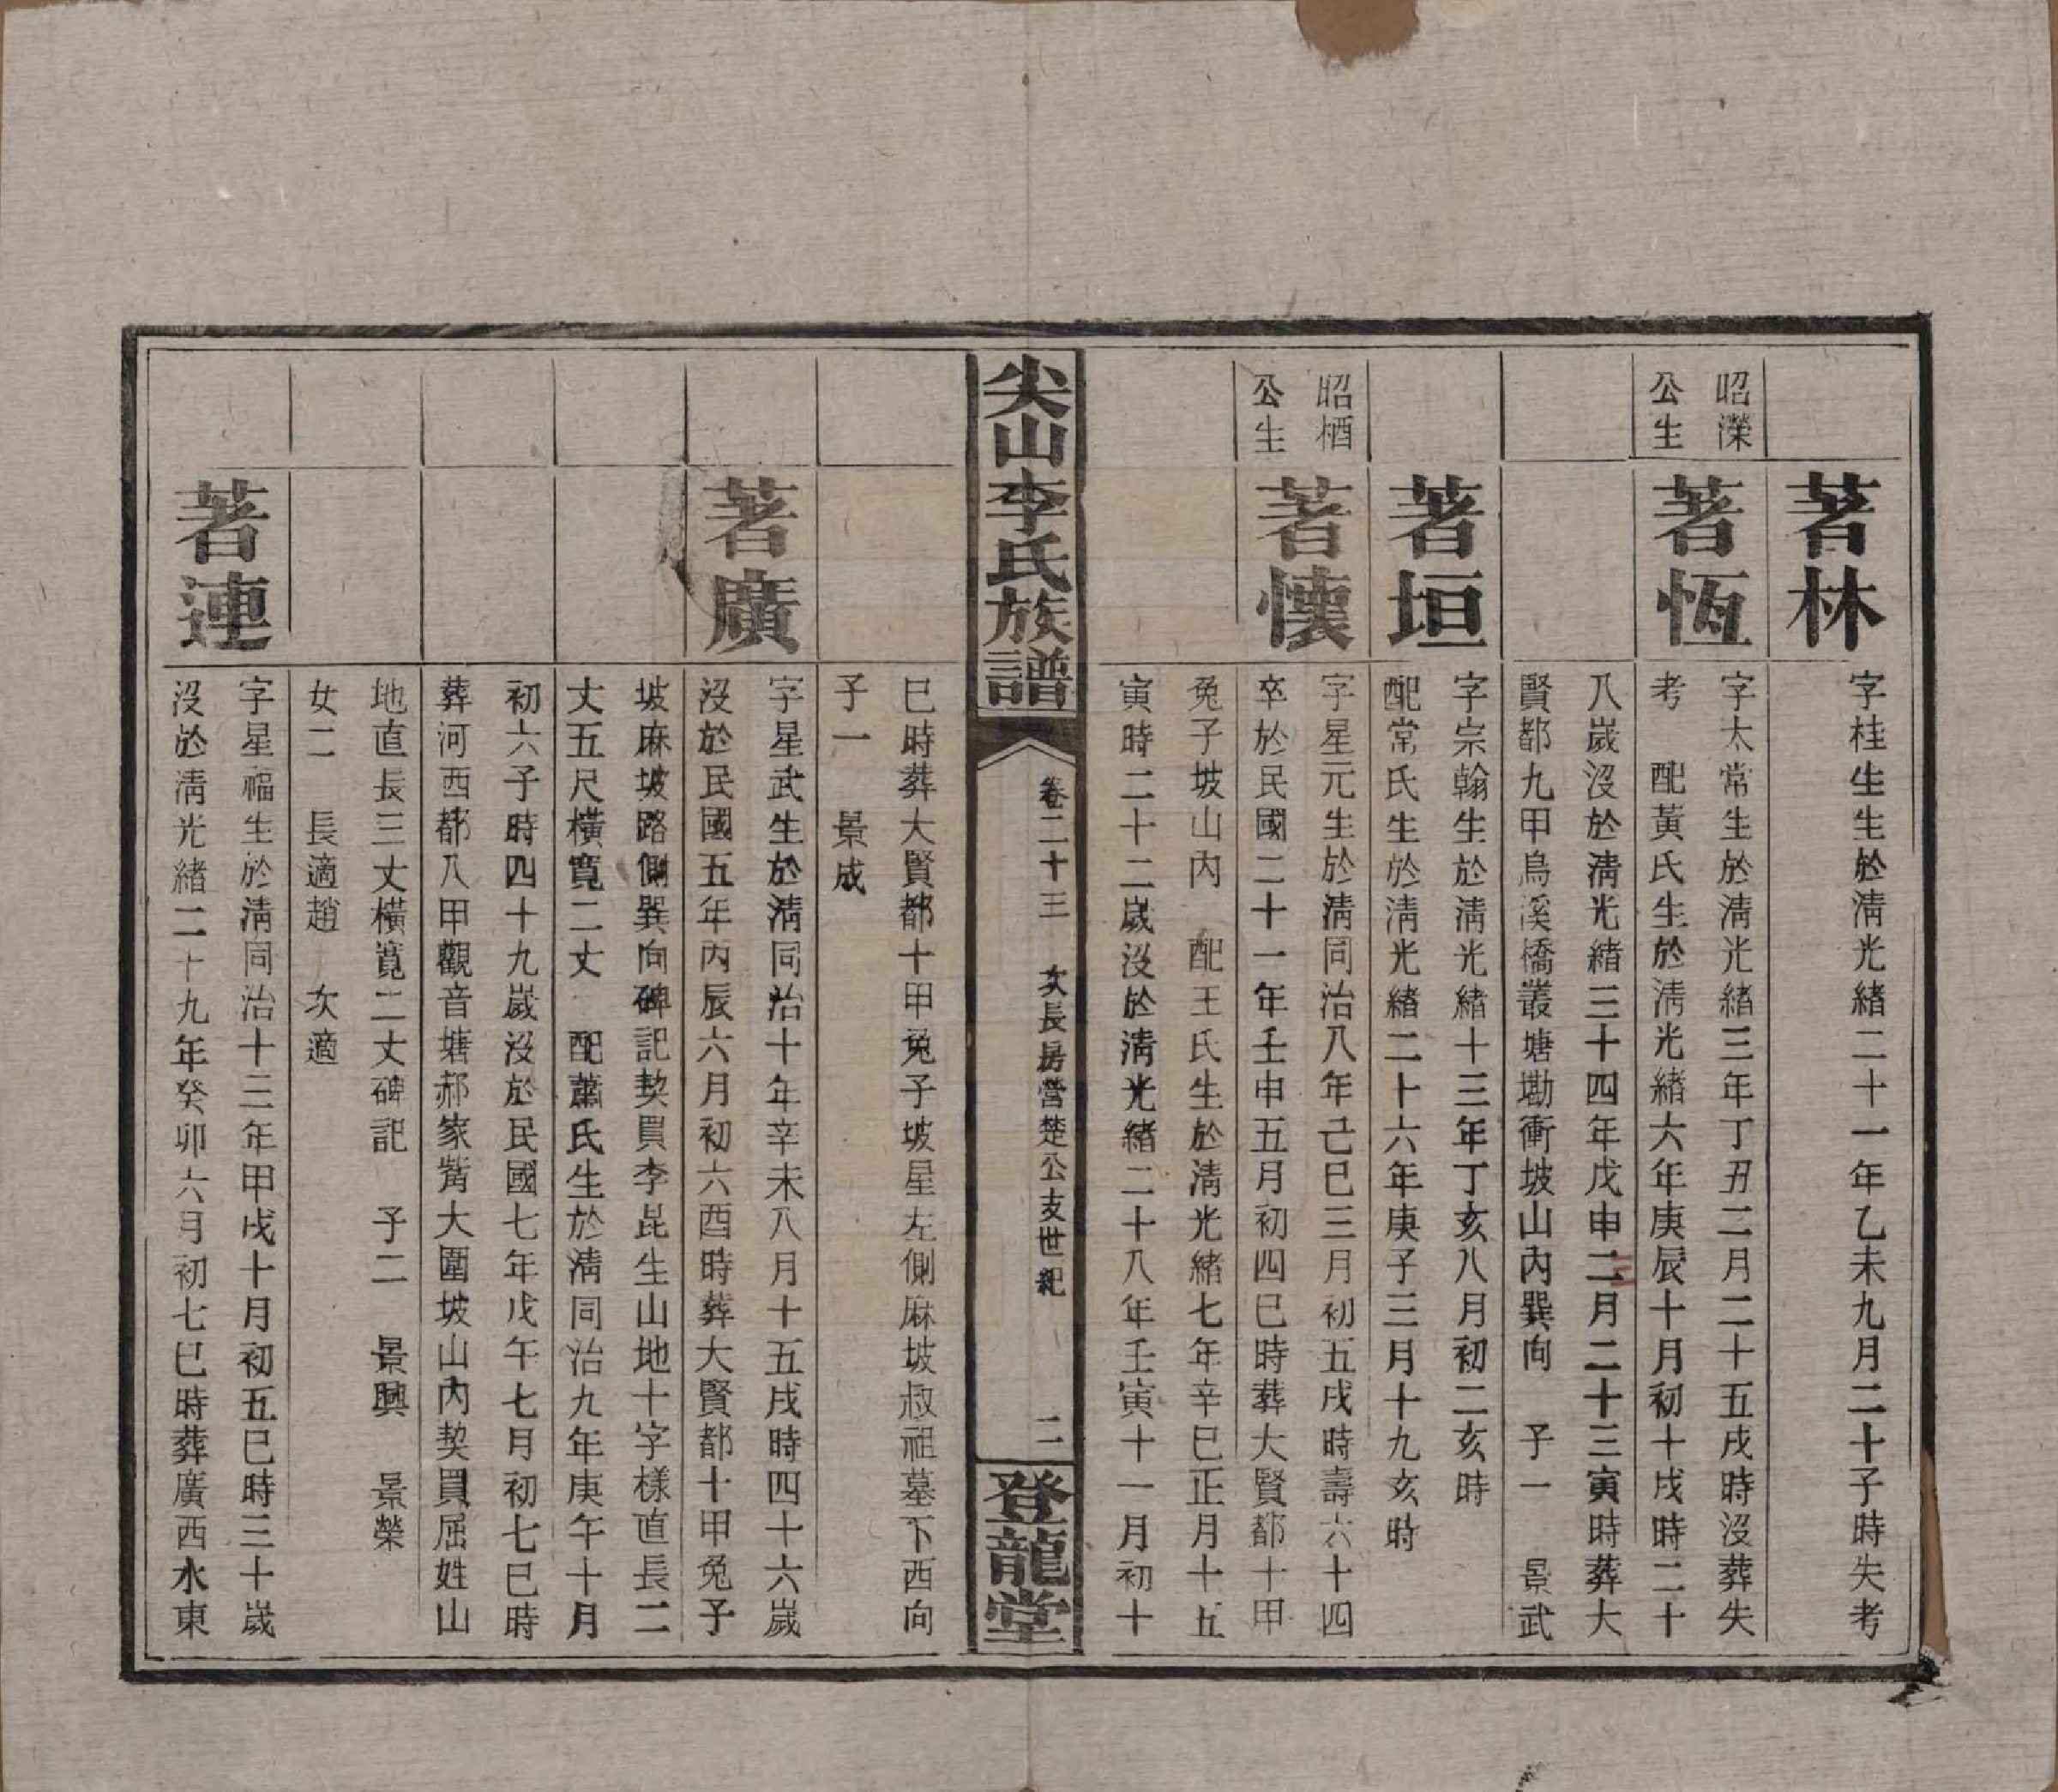 著林
字桂生生於淸光緒二十一年乙未九月二十子時失考
昭濼
公生
著恆
字太常生於淸光緒三年丁丑二月二十五戌時沒葬失
考 配黃氏生於淸光緒六年庚辰十月初十戌時二十
八歲沒於淸光緒三十四年戊申二月二十三寅時葬大
賢都九甲烏溪橋叢塘墈衝坡山內巽向 子一 景武
著垣
字宗翰生於淸光緒十三年丁亥八月初二亥時
配常氏生於淸光緒二十六年庚子三月十九亥時
昭栖
公生
著懷
字星元生於淸同治八年己巳三月初五戌時壽六十四
卒於民國二十一年壬申五月初四巳時葬大賢都十甲
兔子坡山內 配王氏生於淸光緒七年辛巳正月十五
寅時二十二歲沒於淸光緒二十八年壬寅十一月初十
尖山李氏族譜
卷二十三 次長房營楚公支世紀 二
登龍堂
巳時葬大賢都十甲兔子坡星左側麻坡叔祖墓下西向
子一 景成
著廣
字星武生於淸同治十年辛未八月十五戌時四十六歲
沒於民國五年丙辰六月初六酉時葬大賢都十甲兔子
坡麻坡路側巽向碑記契買李昆生山地十字樣直長二
丈五尺橫寬二丈 配蕭氏生於淸同治九年庚午十月
初六子時四十九歲沒於民國七年戊午七月初七巳時
葬河西都八甲觀音塘郝家嘴大圍坡山內契買屈姓山
地直長三丈橫寬二丈碑記 子二 景興 景榮
女二 長適趙 次適
著連
字星福生於淸同治十三年甲戌十月初五巳時三十歲
沒於淸光緒二十九年癸卯六月初七巳時葬廣西水東